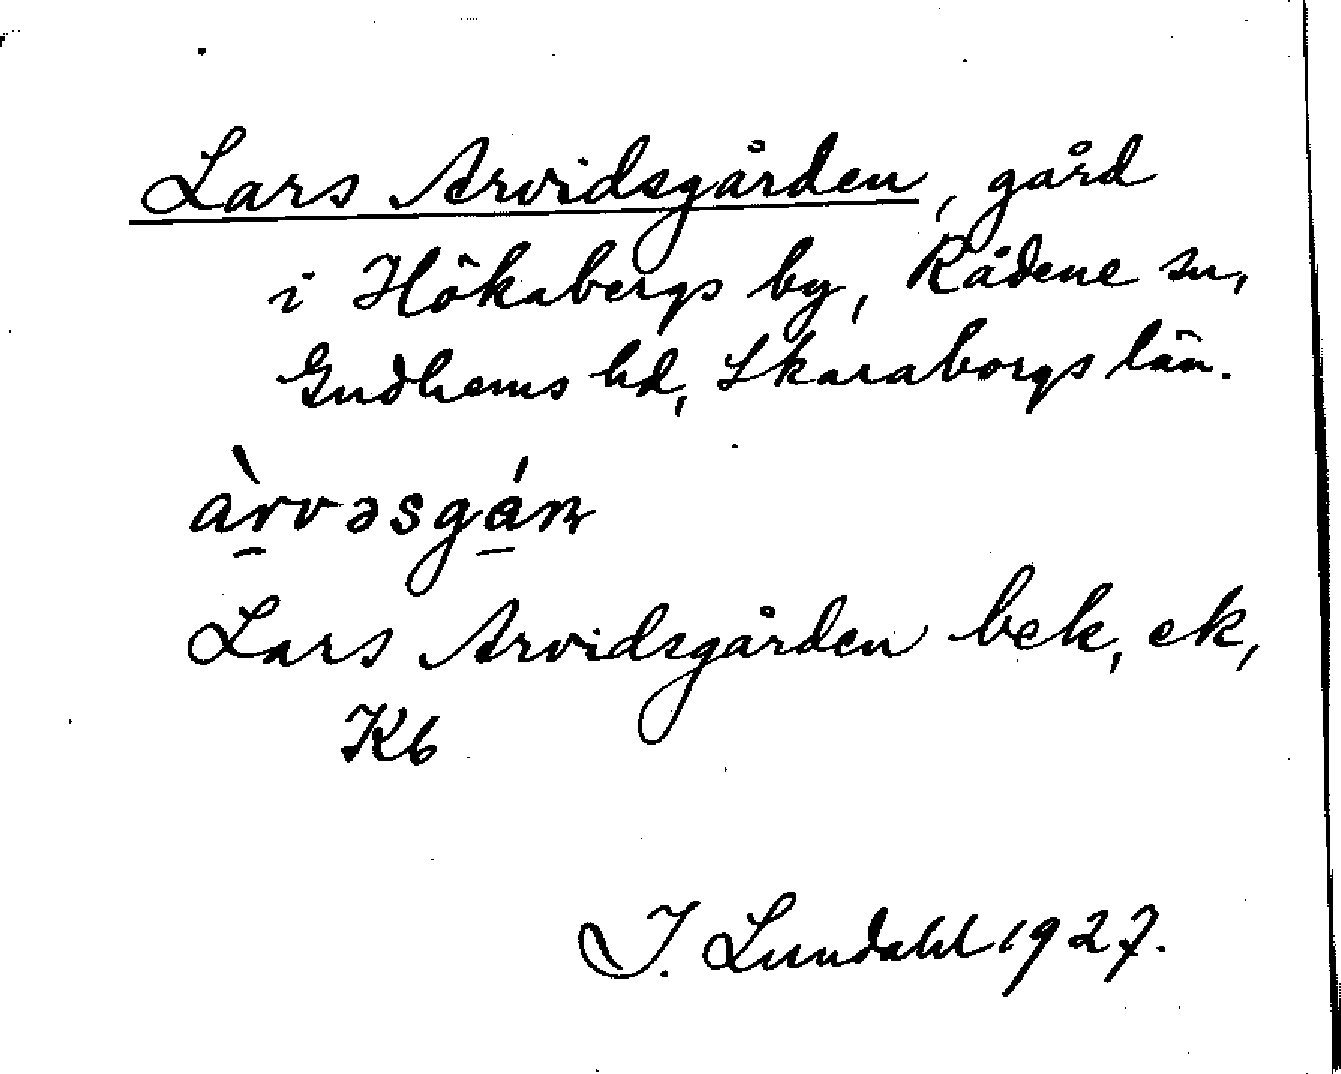 Lars Arvidsgården, gård
i Hökabergs by, Rådene sn,
Gudhems hd, Skaraborgs län.
àrvəsgán
Lars Arvidsgården bek, ek,
Kb
I. Lundahl 1927.